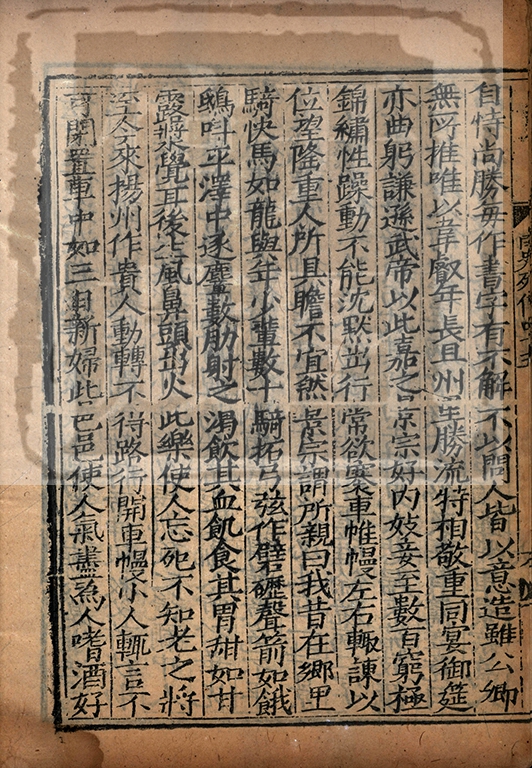 自恃尚勝每作書字有不解不以問人皆以意造雖公卿
無所推唯以韋叡年長且州里勝流特相敬重同宴御筵
亦曲躬謙遜武帝以此嘉之景宗好内妓妾至數百窮極
錦繡性躁動不能沈默出行常欲褰車帷幔左右輙諫以
位望隆重人所具瞻不宜然景宗謂所親曰我昔在鄉里
騎快馬如龍與年少輩數十騎拓弓弦作礕礰聲箭如餓
鴟呌平澤中逐麞數肋射之渴飲其血飢食其胃甜如甘
露漿覺耳後生風鼻頭出火此樂使人忘死不知老之將
至今來揚州作貴人動轉不得路行開車幔小人輙言不
可閉置車中如三日新婦此邑邑使人氣盡為人嗜酒好